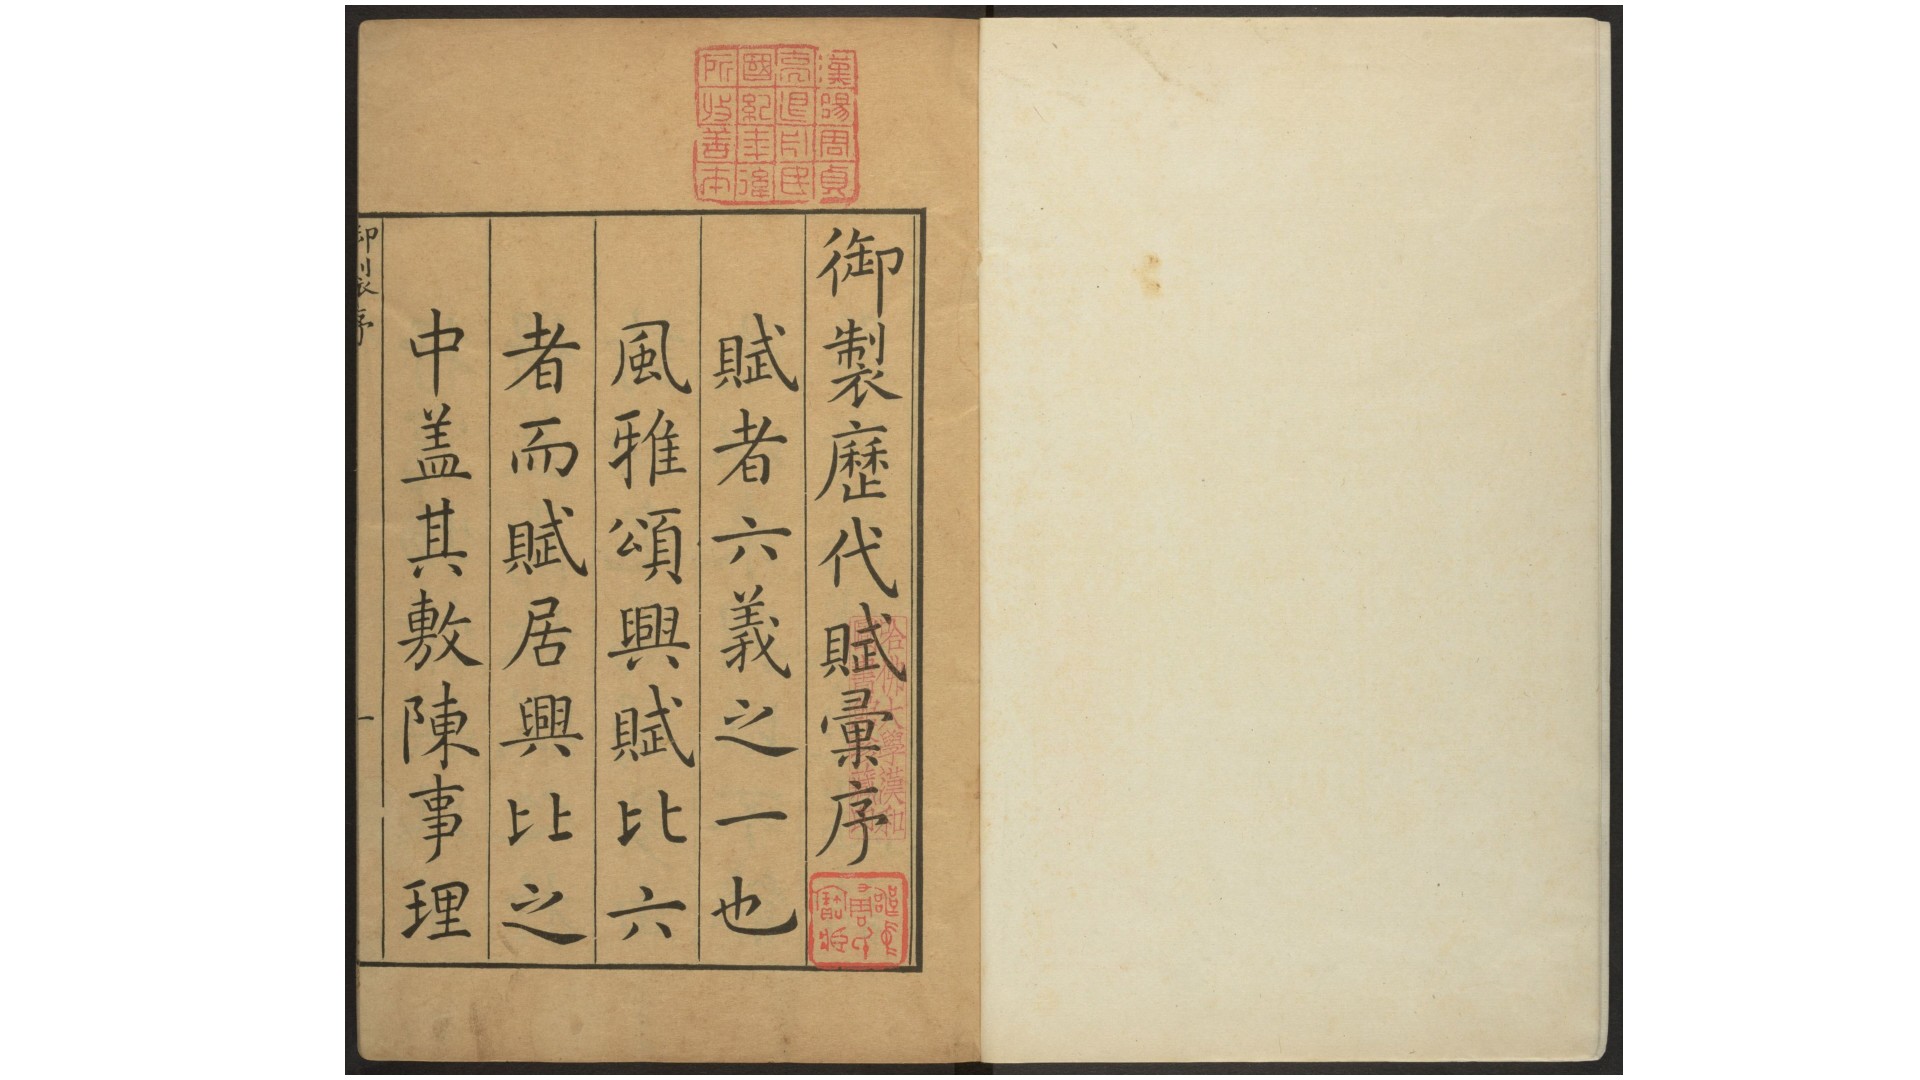 漢陽周貞
亮退舟民
國紀年後
所收善本
御製歷代賦彙序
哈佛大學漢和
圖書館珍藏印
賦者六義之一也
風雅頌興賦比六
者而賦居興比之
中盖其敷陳事理
御製序
一